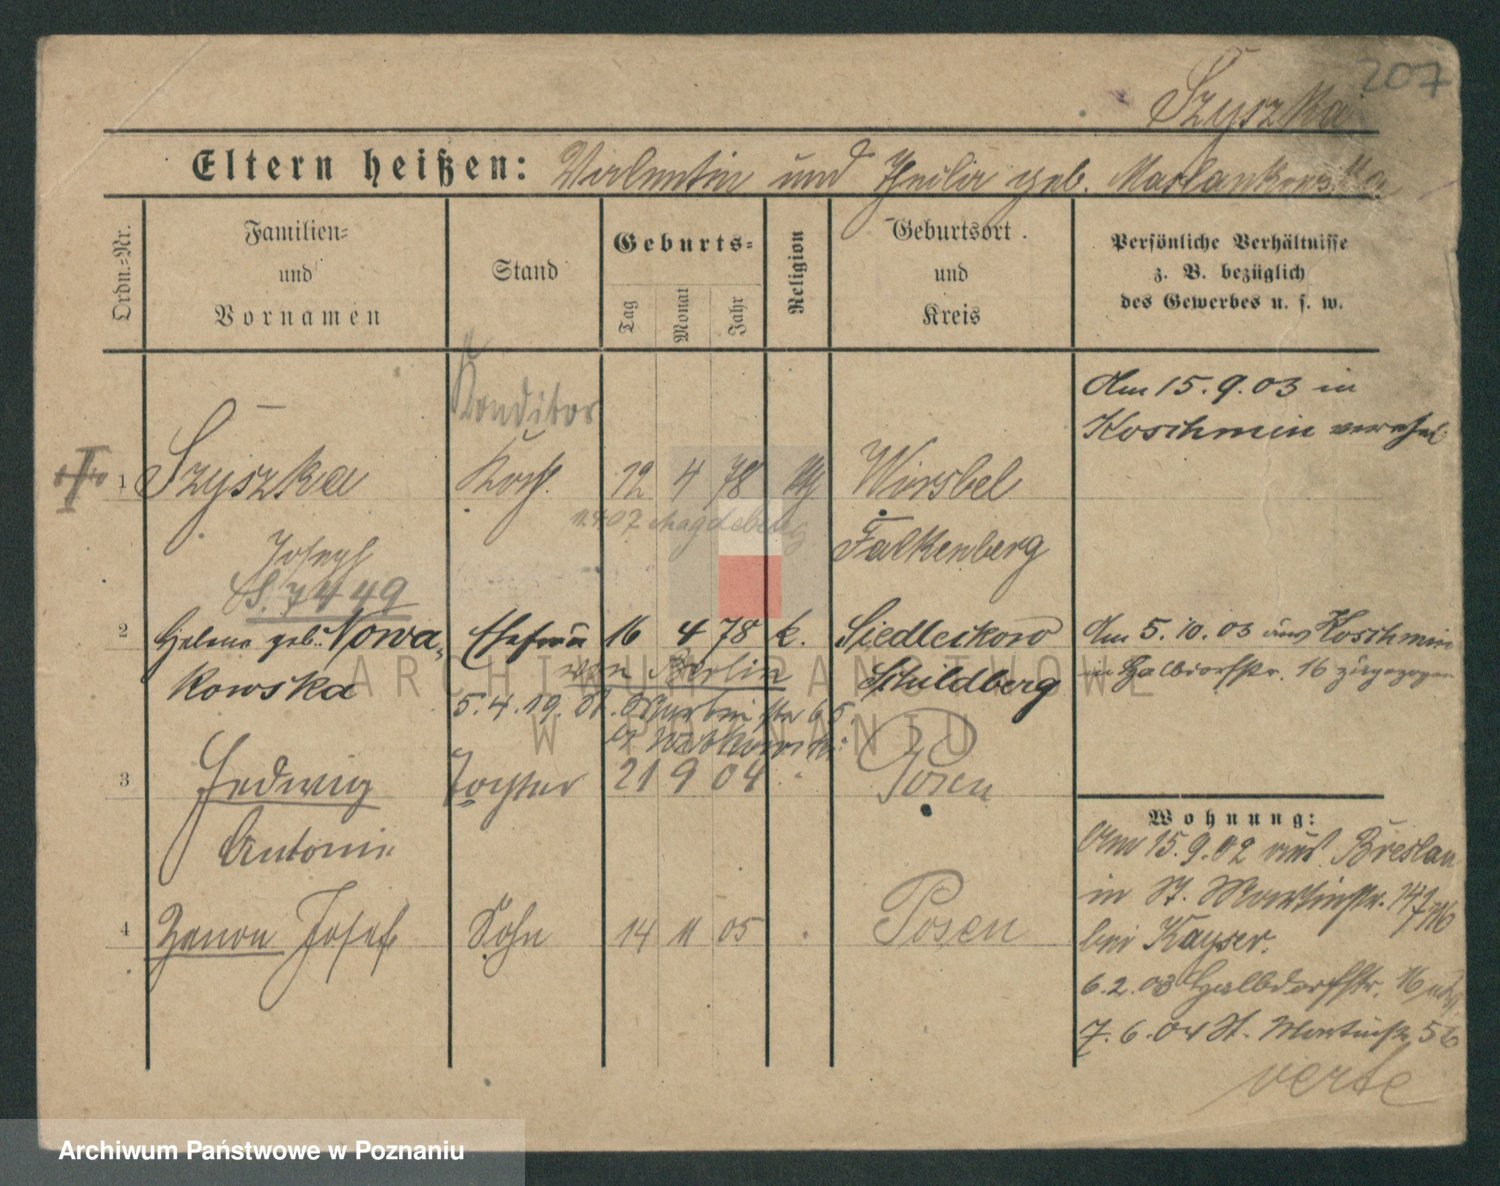 207
Szyszka
Eltern heißen: Valentin und geb.
Ordn.-Nr.
Familien-
und
Vornamen
Stand
Geburts-
Tag
Monat
Jahr
Religion
Geburtsort
und
Kreis
Persönliche Verhältnisse
z. B. bezüglich
des Gewerbes u. s. w.
Am 15.9.03 in
Koschmin
Konditor
1 Szyszka 12 4 78 Wirsbel
Magdeburg
Joseph Falkenberg
S. 7449
2 Helene geb. Nowa- Ehefrau 16 4 78 k. Siedleikow
kowska Schildberg
Am 5.10.03 aus Koschmin
in Halbdorfstr. 16 zugezogen
von Berlin
5.4.19. St. Martinstr 65.
3 Hedwig Tochter 21 9 04 Posen
Antonie
4 Zenon Josef Sohn 14 11 05 Posen
Wohnung:
Am 15.9.02 aus Breslau
in St. Martinstr.
bei Kayser.
6.2.03 Halbdorfstr. 16
7.6.04 St. Martinstr. 56
verte
ARCHIWUM PAŃSTWOWE
W POZNANIU
Archiwum Państwowe w Poznaniu